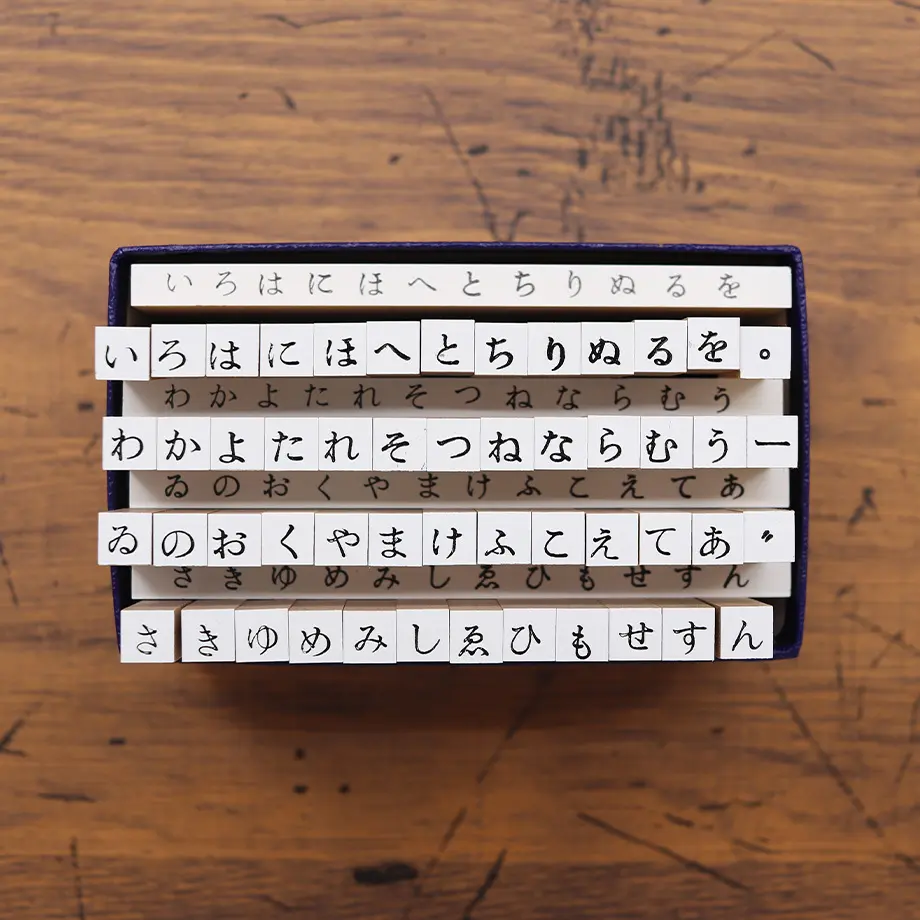 いろはにほへとちりぬるを
いろはにほへとちりぬるを。
わかよたれそつねならむう
わかよたれそつねならむうー
ゐのおくやまけふこえてあ
ゐのおくやまけふこえてあ〃
さきゆめみしゑひもせすん
さきゆめみしゑひもせすん